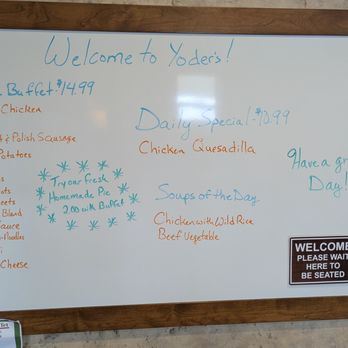 Welcome to Yoder's!
Buffet: $14.99
Chicken
& Polish Sausage
Potatoes
Blend
Sauce
Noodles
Cheese
Try our Fresh
Homemade Pie
2.00 with Buffet
Daily Special - $10.99
Chicken Quesadilla
Soups of the Day
Chicken with Wild Rice
Beef Vegetable
Have a
Day!
WELCOME
PLEASE WAIT
HERE TO
BE SEATED